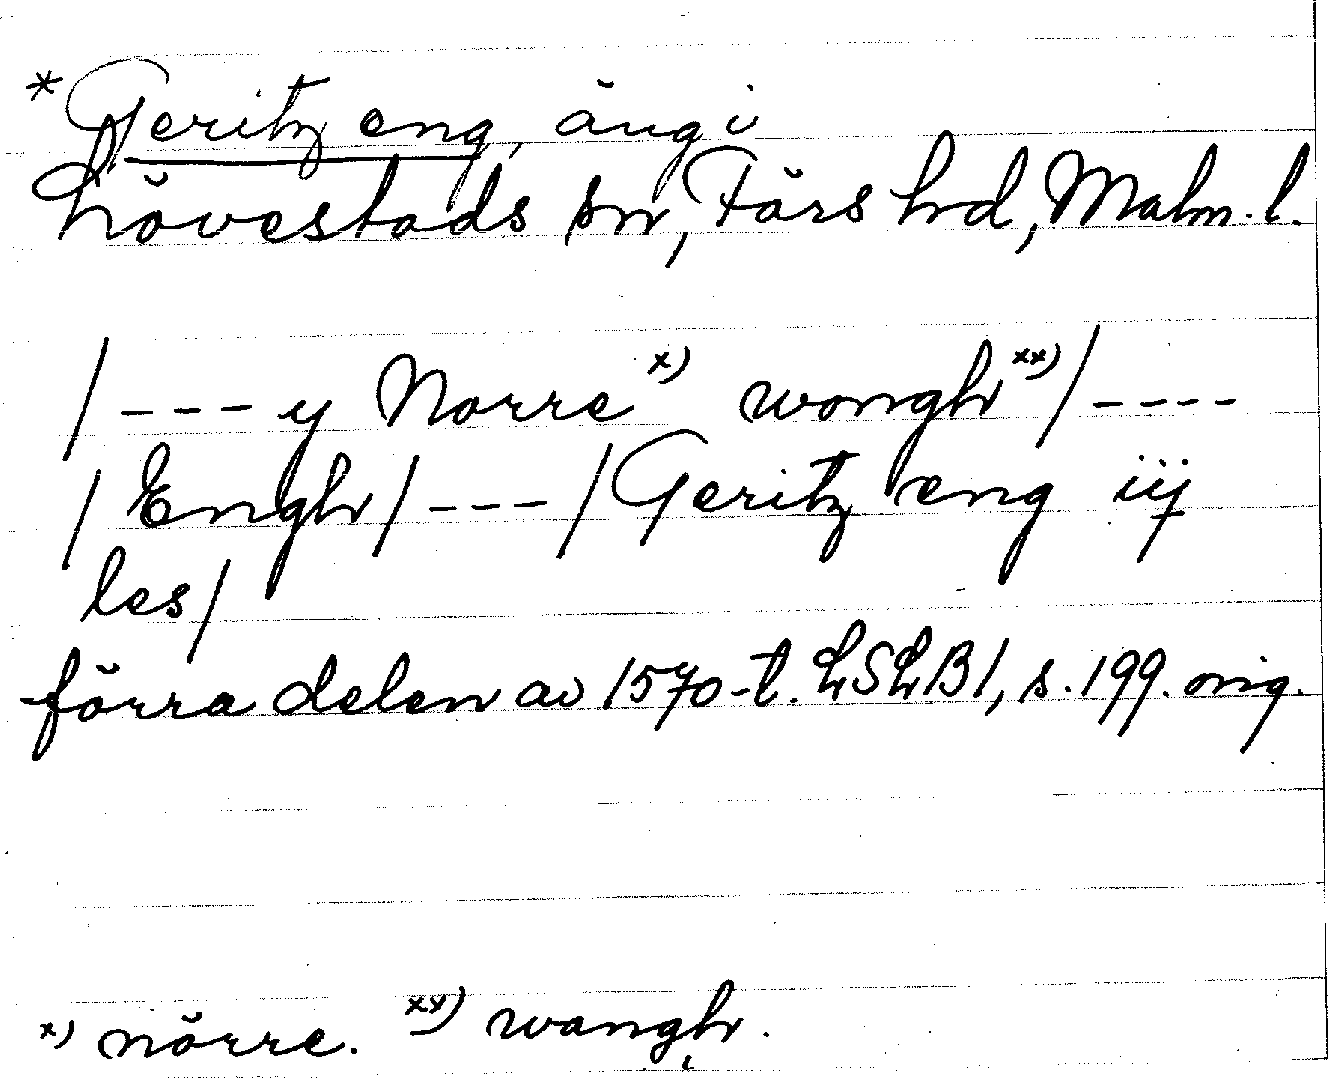 * Geritz eng, äng i
Lövestads sn, Färs hd, Malm. l.
/ - - - y Norre x) wongh xx) / - - - -
/ Engh / - - - / Geritz eng iij
les /
förra delen av 1570-t. LSLB1, s. 199. orig.
x) nörre. xx) wangh.